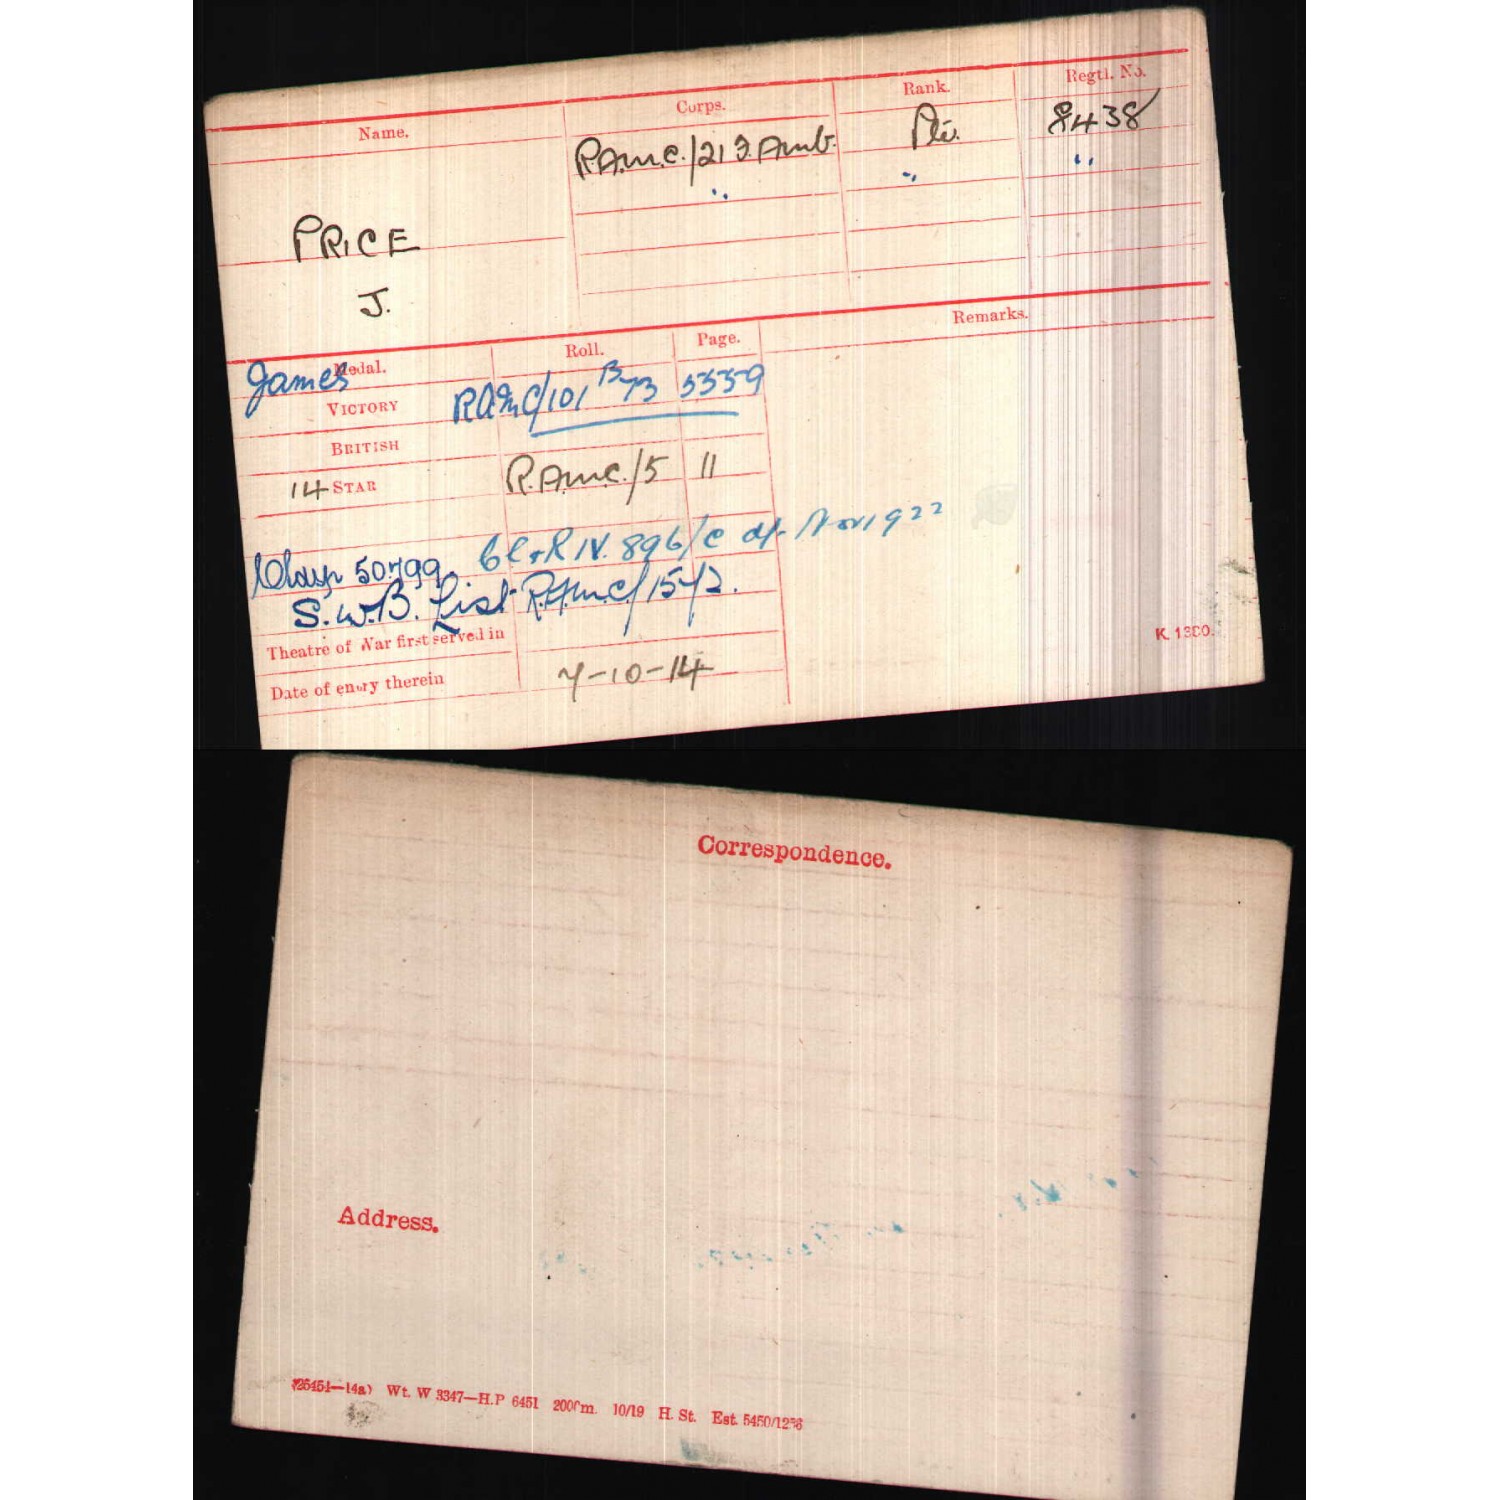 Name. Corps. Rank. Regtl. No.
R.A.M.C./21 F. Amb. Pte. 8438
" " "
PRICE
J.
James
Medal. Roll. Page. Remarks.
VICTORY RAMC/101 B73 5359
BRITISH
14 STAR R.A.M.C./5 11
Clasp 50799. Cl & R IV. 896/c df. Nov 1922
S.W.B. List R.A.M.C/15/2.
Theatre of War first served in
Date of entry therein 7-10-14
K. 1380.
Correspondence.
Address.
Wt. W 3347—H.P 6451 2000m. 10/19 H. St. Est. 5450/1256